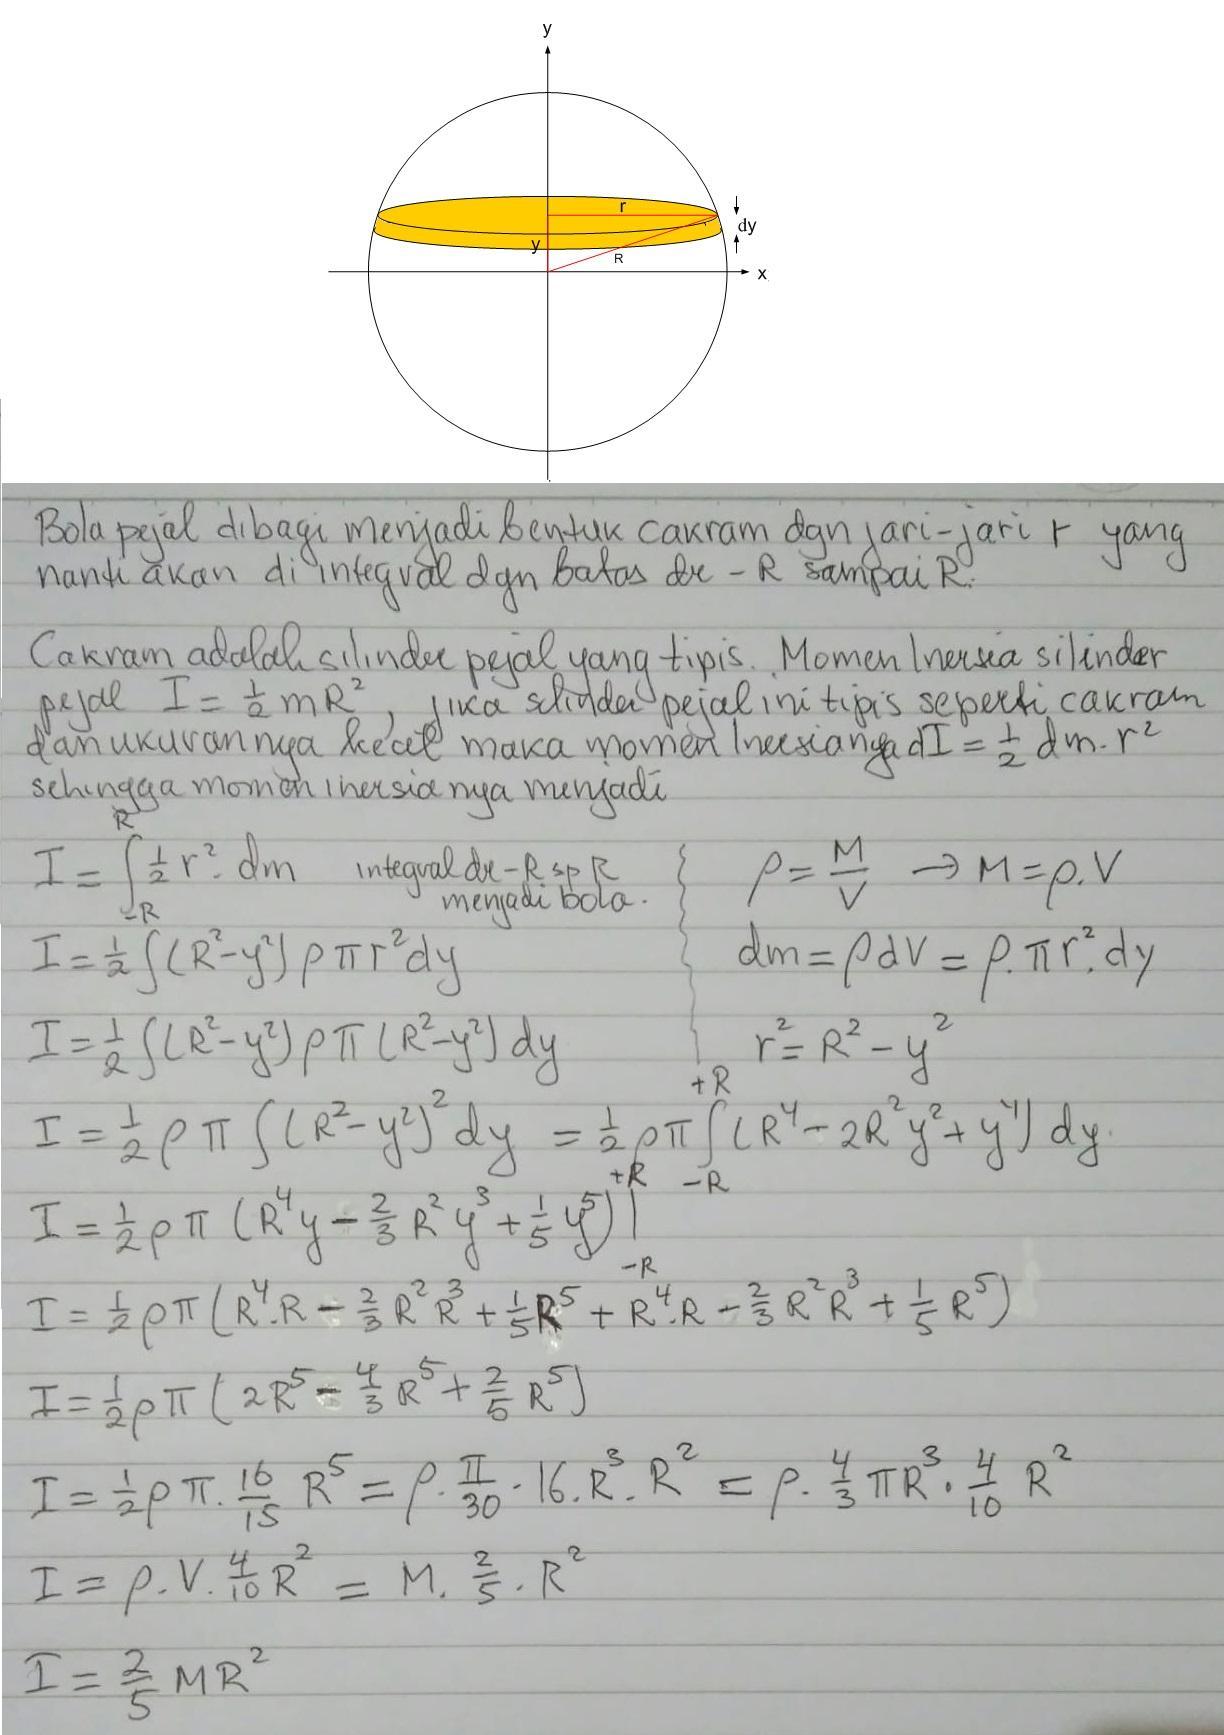 y
r
dy
y
R
x
Bola pejal dibagi menjadi bentuk cakram dgn jari-jari r yang
nanti akan di integral dgn batas dr -R sampai R.
Cakram adalah silinder pejal yang tipis. Momen Inersia silinder
pejal I = 1/2 mR², jika silinder pejal ini tipis seperti cakram
dan ukurannya kecil maka momen Inersianya dI = 1/2 dm. r²
sehingga momen inersia nya menjadi
I = ∫_{-R}^{R} 1/2 r². dm integral dr -R sp R
menjadi bola.
ρ = M/V → M = ρ.V
I = 1/2 ∫(R²-y²) ρ π r² dy
dm = ρ dV = ρ. π r². dy
I = 1/2 ∫(R²-y²) ρ π (R²-y²) dy
r² = R² - y²
I = 1/2 ρ π ∫(R²-y²)² dy = 1/2 ρ π ∫_{-R}^{+R} (R⁴ - 2R²y² + y⁴) dy.
I = 1/2 ρ π (R⁴y - 2/3 R² y³ + 1/5 y⁵) |_{-R}^{+R}
I = 1/2 ρ π (R⁴.R - 2/3 R² R³ + 1/5 R⁵ + R⁴.R - 2/3 R² R³ + 1/5 R⁵)
I = 1/2 ρ π (2R⁵ - 4/3 R⁵ + 2/5 R⁵)
I = 1/2 ρ π. 16/15 R⁵ = ρ. π/30 . 16. R³. R² = ρ. 4/3 π R³. 4/10 R²
I = ρ. V. 4/10 R² = M. 2/5 . R²
I = 2/5 M R²